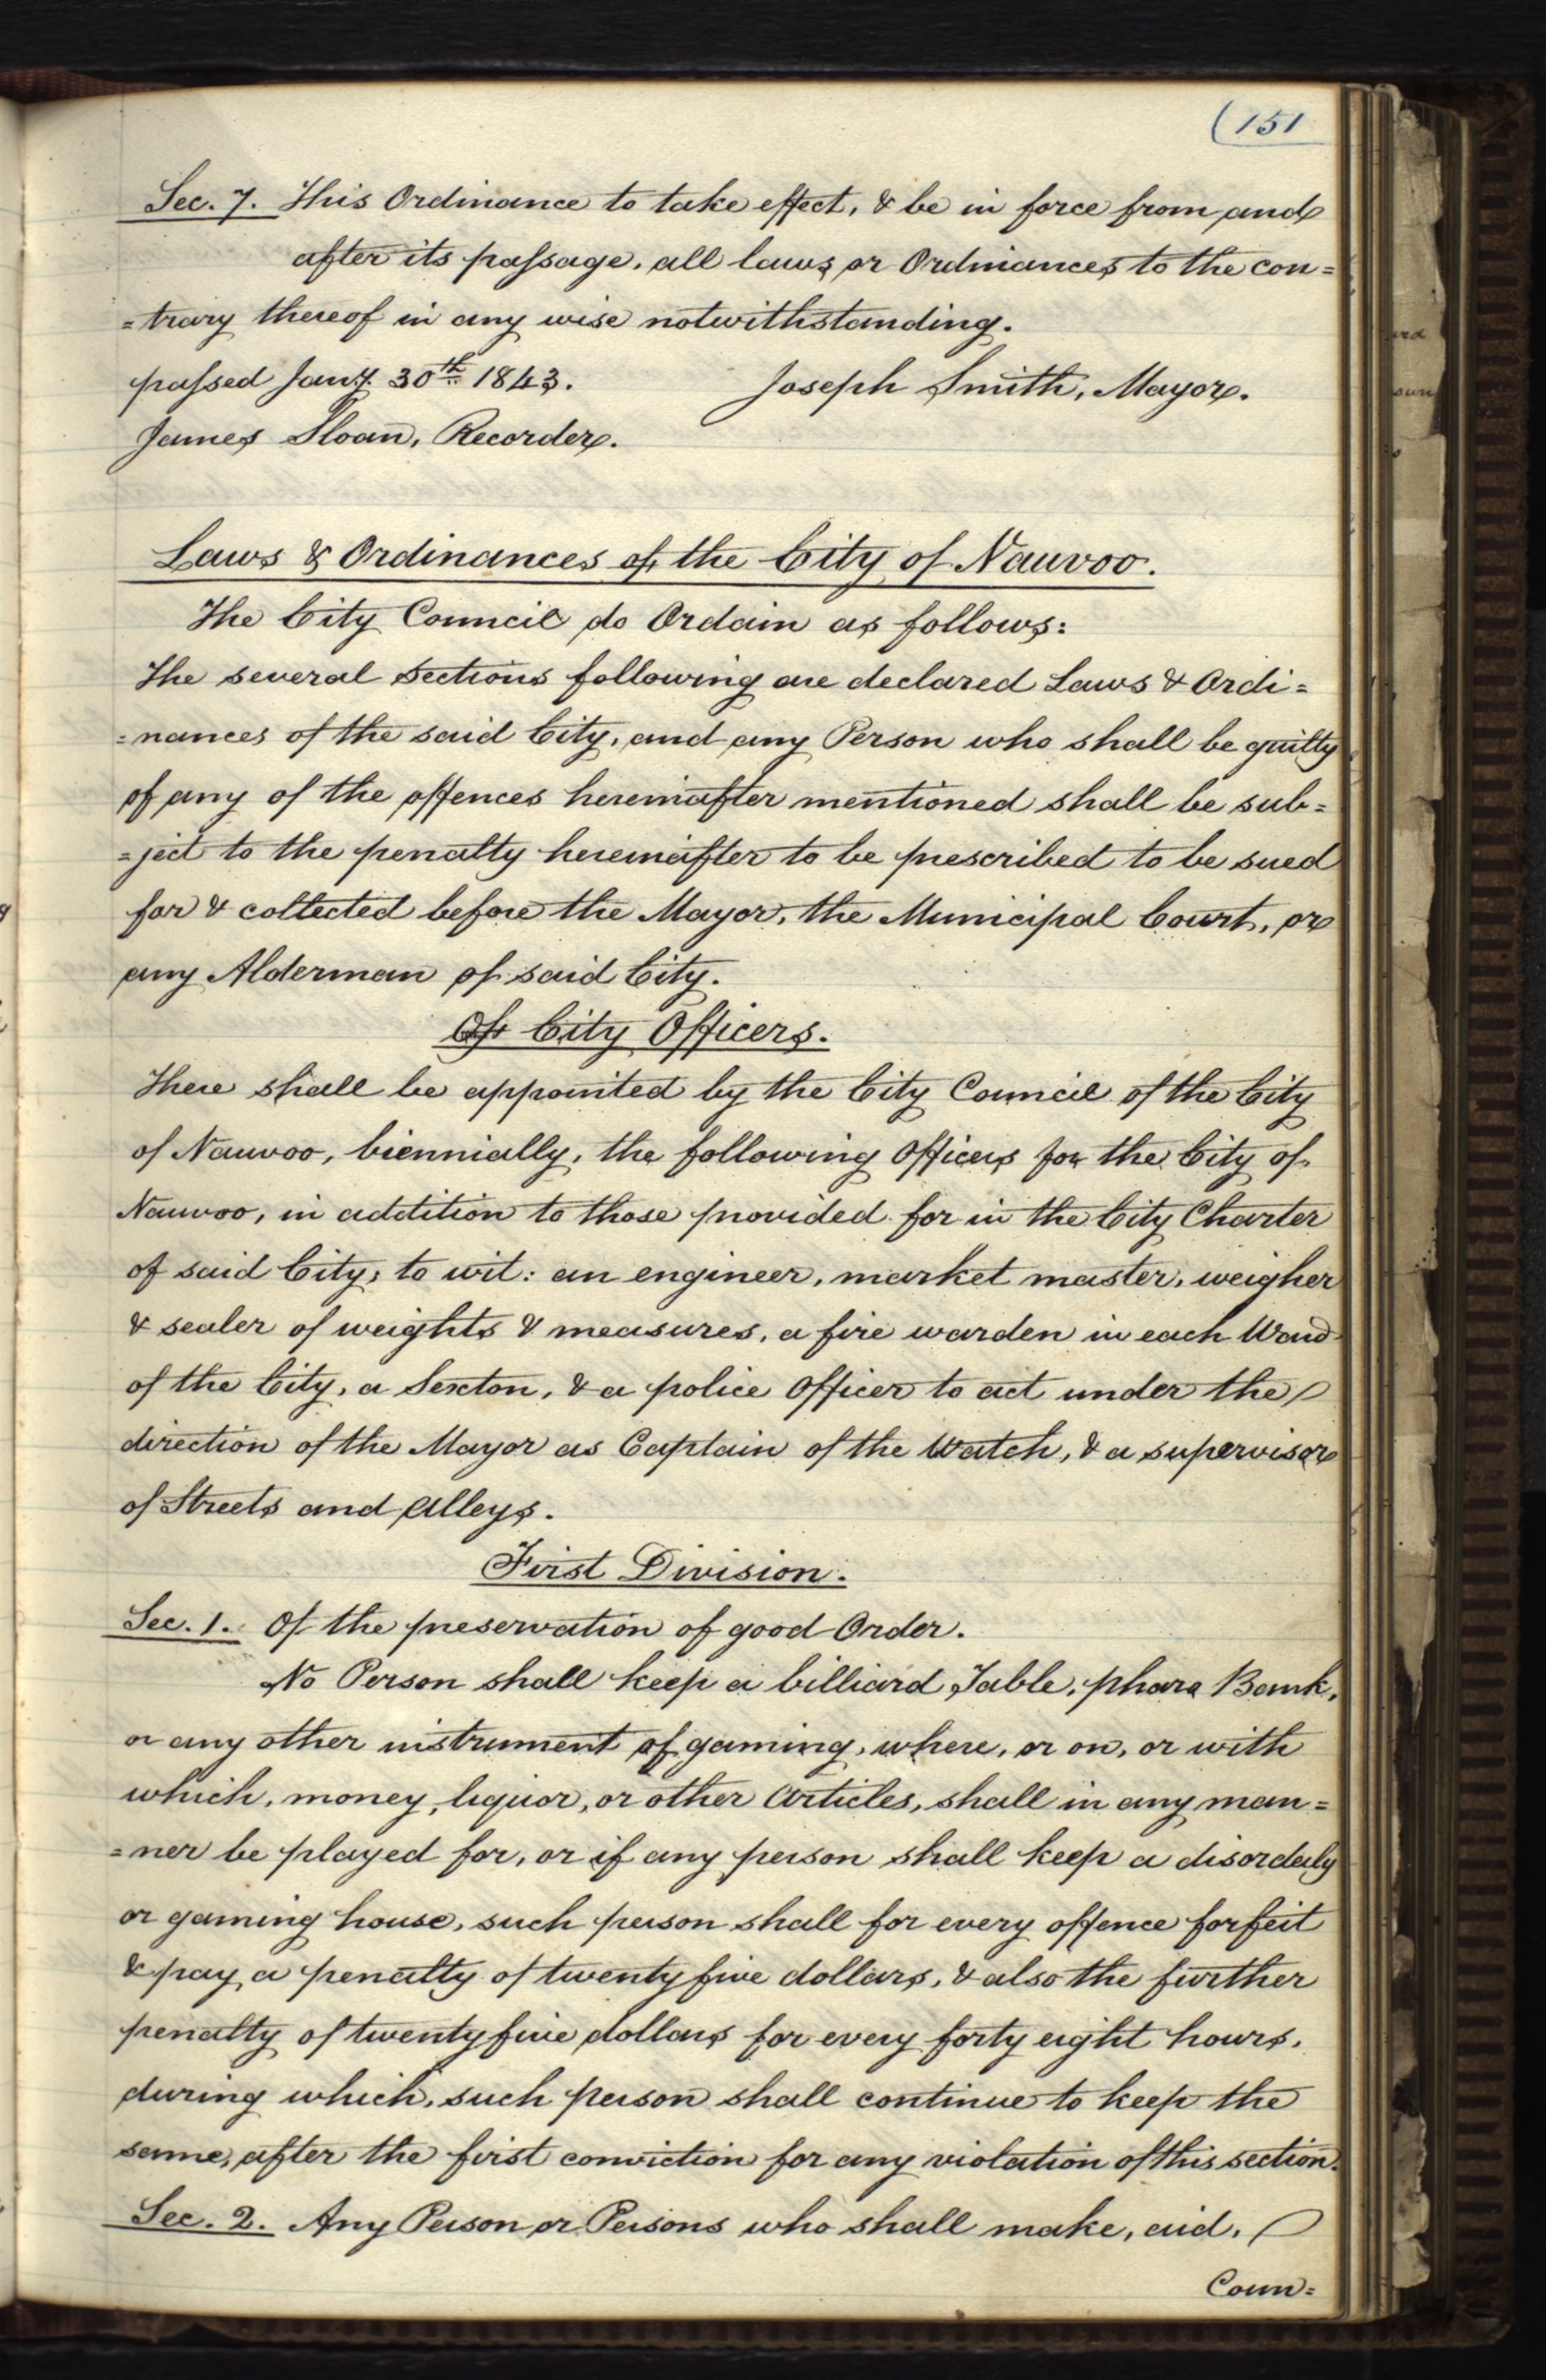 (151
Sec. 7. This Ordinance to take effect, & be in force from and
after its passage, all laws or Ordinances to the con=
=trary thereof in any wise notwithstanding.
passed Jany. 30th. 1843. Joseph Smith, Mayor.
James Sloan, Recorder.
Laws & Ordinances of the City of Nauvoo.
The City Council do Ordain as follows:
The several Sections following are declared Laws & Ordi=
=nances of the said City, and any Person who shall be guilty
of any of the offences hereinafter mentioned shall be sub=
=ject to the penalty hereinafter to be prescribed to be sued
for & collected before the Mayor, the Municipal Court, or
any Alderman of said City.
Of City Officers.
There shall be appointed by the City Council of the City
of Nauvoo, biennially, the following Officers for the City of
Nauvoo, in addition to those provided for in the City Charter
of said City; to wit: an engineer, market master, weigher
& sealer of weights & measures, a fire warden in each Ward
of the City, a Sexton, & a police Officer to act under the
direction of the Mayor as Captain of the Watch, & a supervisor
of Streets and Alleys.
First Division.
Sec. 1. Of the preservation of good Order.
No Person shall keep a billiard Table, phara Bank,
or any other instrument of gaming, where, or on, or with
which, money, liquor, or other Articles, shall in any man=
=ner be played for, or if any person shall keep a disorderly
or gaming house, such person shall for every offence forfeit
& pay a penalty of twenty five dollars, & also the further
penalty of twenty five dollars for every forty eight hours,
during which, such person shall continue to keep the
same, after the first conviction for any violation of this section.
Sec. 2. Any Person or Persons who shall make, aid,
Coun=